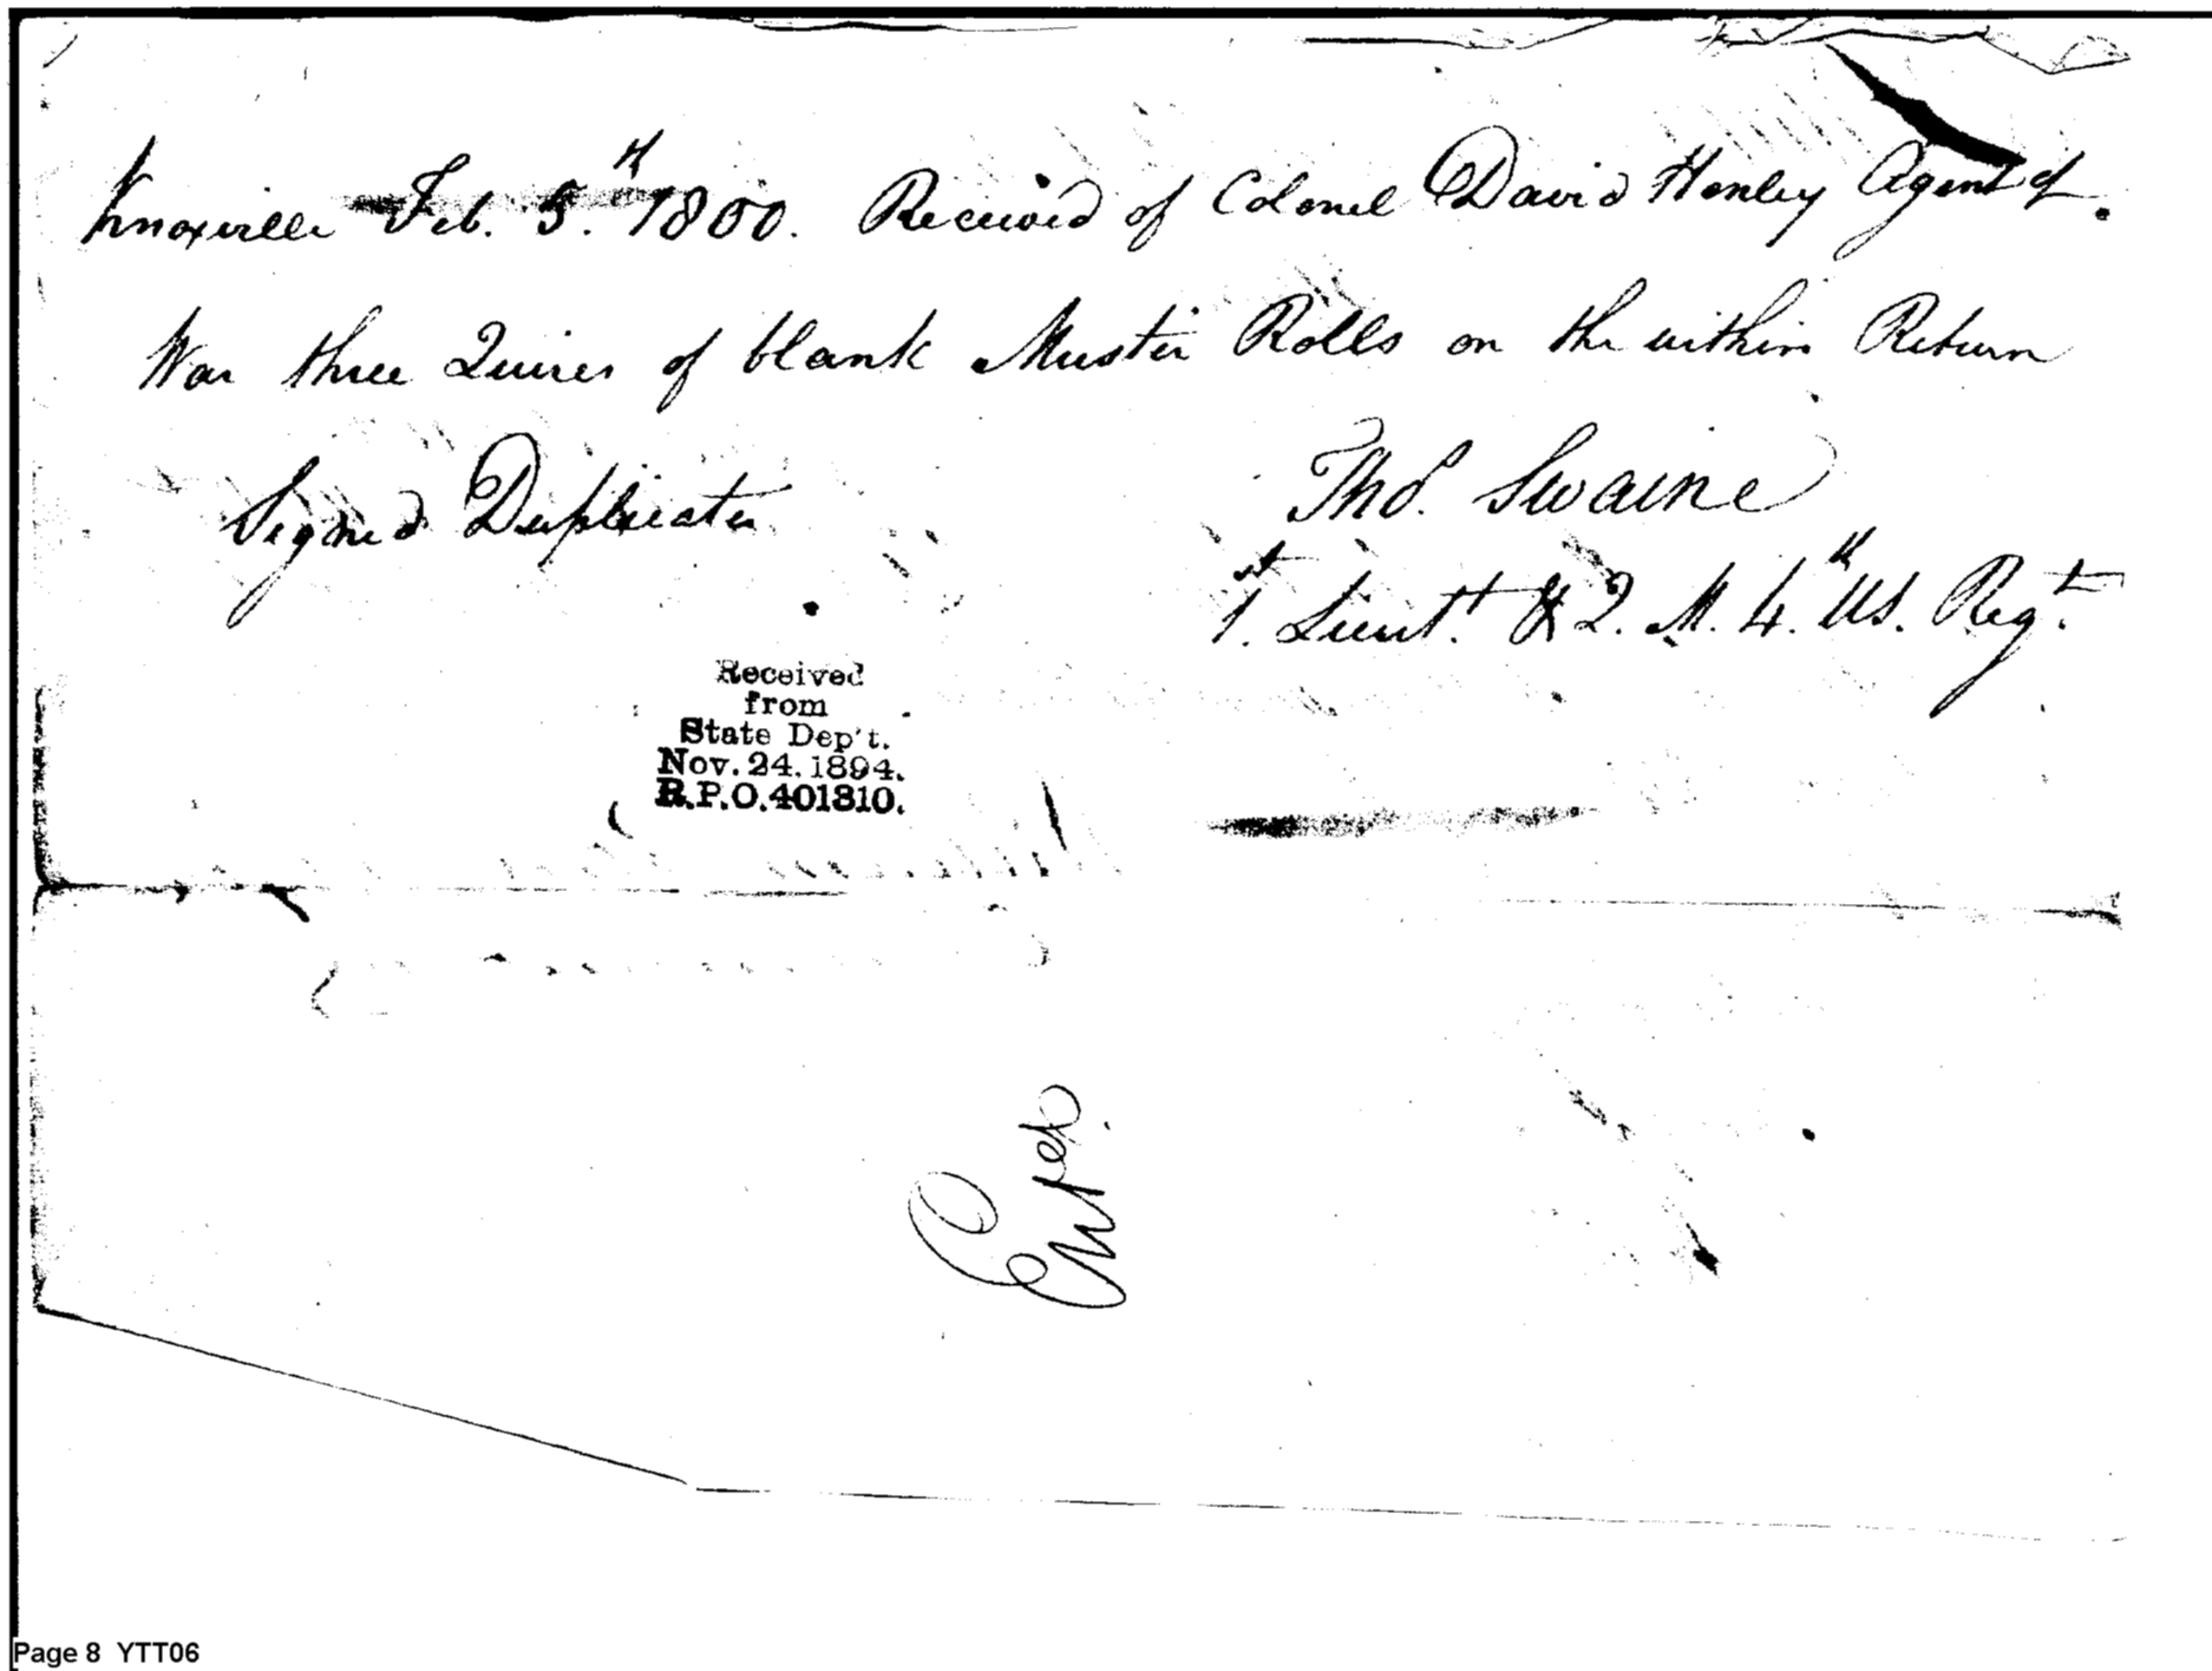 Knoxville Feb. 5.th 1800. Received of Colonel David Henley Agent of
War three Quires of blank Muster Rolls on the within Return
Signed Duplicates
Thos. Swaine
1.st Lieut. & Q. M. 4.th US. Regt.
Received
from
State Dep't.
Nov. 24. 1894.
R.P.O. 401810.
Page 8 YTT06